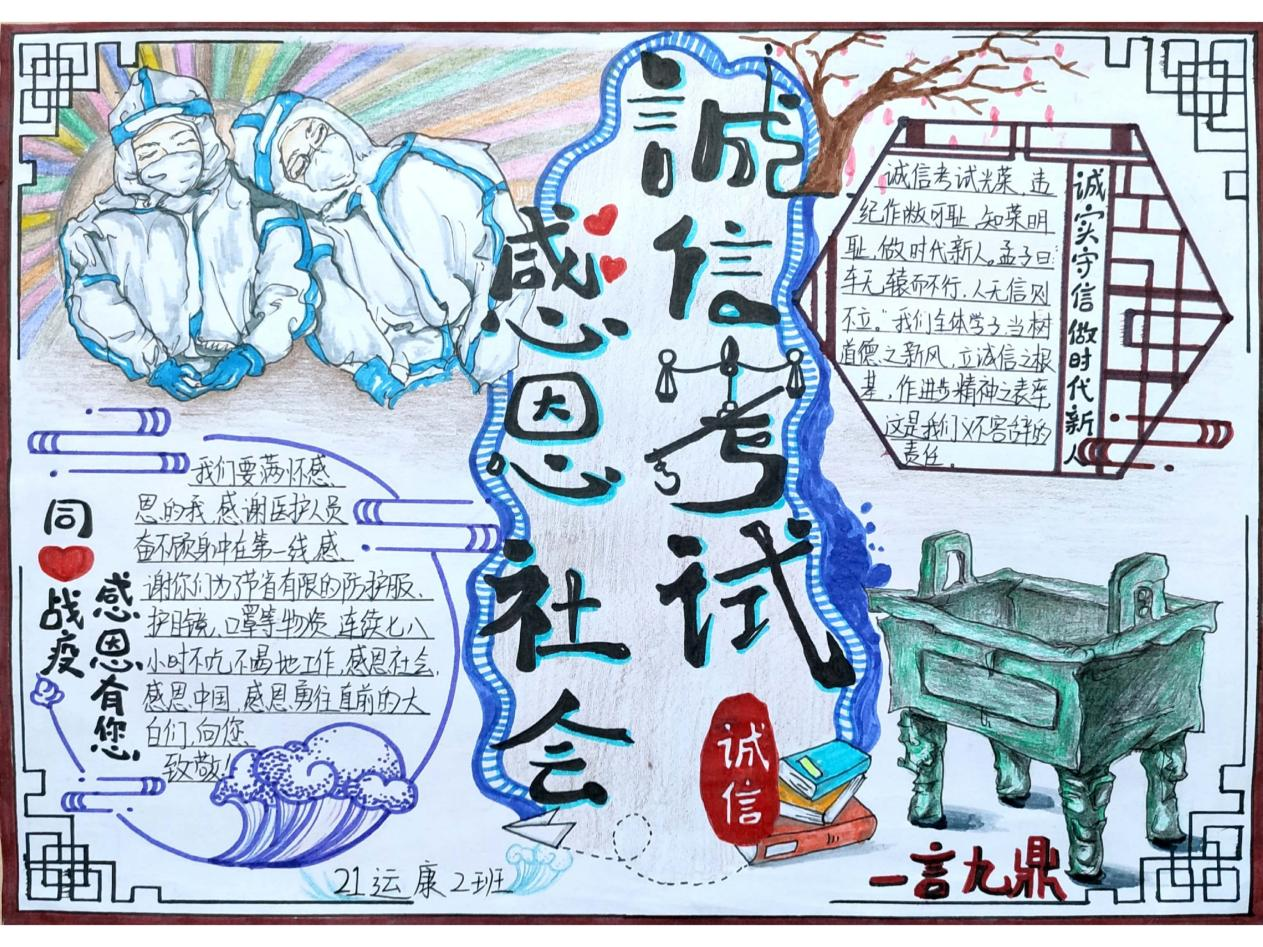 誠信考试
感恩社会
诚信考试光荣,违
纪作敝可耻,知荣明
耻,做时代新人。孟子曰:
车无辕而不行,人无信则
不立。"我们全体学子,当树
道德之新风,立诚信之根
基,作进步精神之表率,
这是我们义不容辞的
责任.
诚实守信做时代新人
同
战疫
感恩有您
我们要满怀感
恩的我,感谢医护人员
奋不顾身冲在第一线,感
谢你们为了节省有限的防护服、
护目镜,口罩等物资,连续七八
小时不吃,不喝地工作,感恩社会,
感恩中国,感恩勇往直前的大
白们,向您
致敬!
诚信
一言九鼎
21运康2班